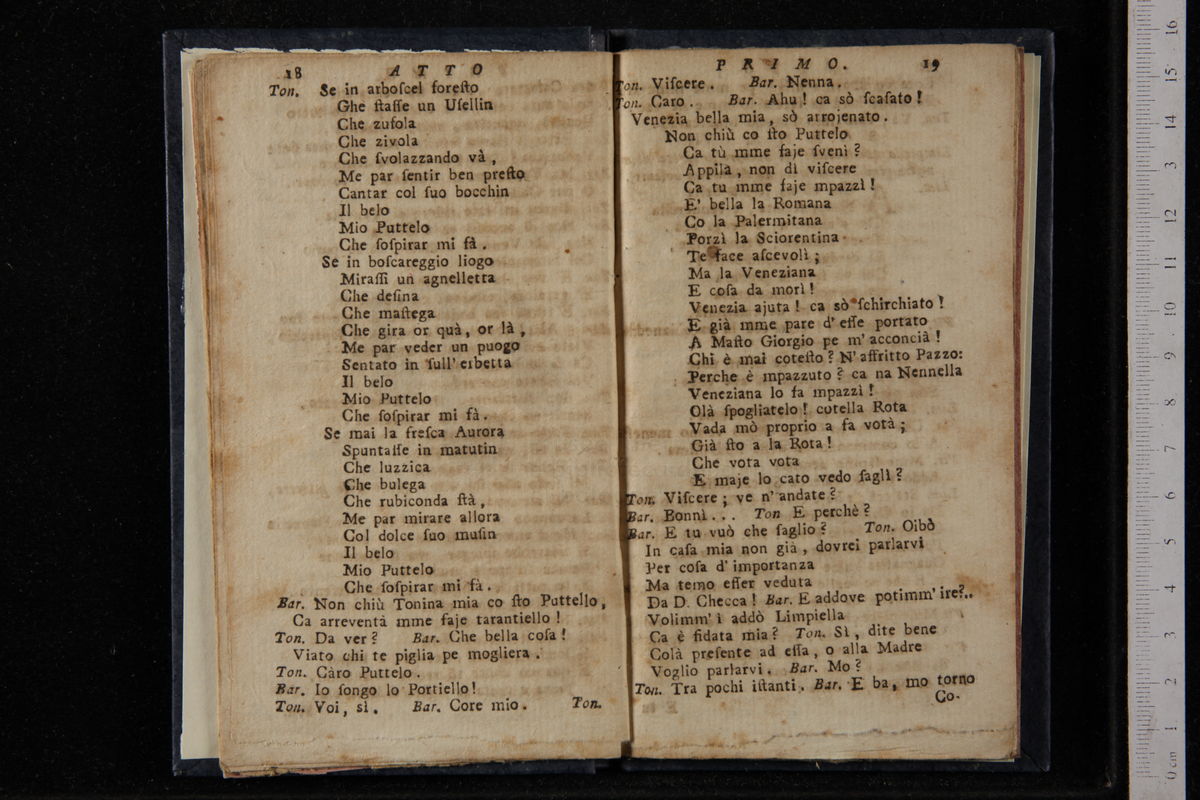 18 ATTO
Ton. Se in arboſcel foreſto
Ghe ſtaſſe un Uſellin
Che zufola
Che zivola
Che ſvolazzando và,
Me par ſentir ben preſto
Cantar col ſuo bocchin
Il belo
Mio Puttelo
Che ſoſpirar mi fà.
Se in boſcareggio liogo
Miraſſi un agnelletta
Che deſina
Che maſtega
Che gira or quà, or là,
Me par veder un puogo
Sentato in ſull' erbetta
Il belo
Mio Puttelo
Che ſoſpirar mi fà.
Se mai la freſca Aurora
Spuntaſſe in matutin
Che luzzica
Che bulega
Che rubiconda ſtà,
Me par mirare allora
Col dolce ſuo muſin
Il belo
Mio Puttelo
Che ſoſpirar mi fà.
Bar. Non chiù Tonina mia co ſto Puttello,
Ca arreventà mme faje tarantiello!
Ton. Da ver? Bar. Che bella coſa!
Viato chi te piglia pe mogliera.
Ton. Càro Puttelo.
Bar. Io ſongo lo Portiello!
Ton. Voi, sì. Bar. Core mio. Ton.
PRIMO. 19
Ton. Viſcere. Bar. Nenna.
Ton. Caro. Bar. Ahu! ca sò ſcaſato!
Venezia bella mia, sò arrojenato.
Non chiù co ſto Puttelo
Ca tù mme faje ſvenì?
Appila, non dì viſcere
Ca tu mme faje mpazzì!
E' bella la Romana
Co la Palermitana
Porzì la Sciorentina
Te face aſcevolì;
Ma la Veneziana
E coſa da morì!
Venezia ajuta! ca sò ſchirchiato!
E già mme pare d' eſſe portato
A Maſto Giorgio pe m' acconcià!
Chi è mai coteſto? N' affritto Pazzo:
Perche è mpazzuto? ca na Nennella
Veneziana lo fa mpazzì!
Olà ſpogliatelo! cotella Rota
Vada mò proprio a fa votà;
Già ſto a la Rota!
Che vota vota
E maje lo cato vedo ſaglì?
Ton. Viſcere; ve n' andate?
Bar. Bonnì... Ton E perchè?
Bar. E tu vuò che ſaglio? Ton. Oibò
In caſa mia non già, dovrei parlarvi
Per coſa d' importanza
Ma temo eſſer veduta
Da D. Checca! Bar. E addove potimm' ire?..
Volimm' ì addò Limpiella
Ca è fidata mia? Ton. Sì, dite bene
Colà preſente ad eſſa, o alla Madre
Voglio parlarvi. Bar. Mo?
Ton. Tra pochi iſtanti. Bar. E ba, mo torno
Co-
0 cm 1 2 3 4 5 6 7 8 9 10 11 12 13 14 15 16